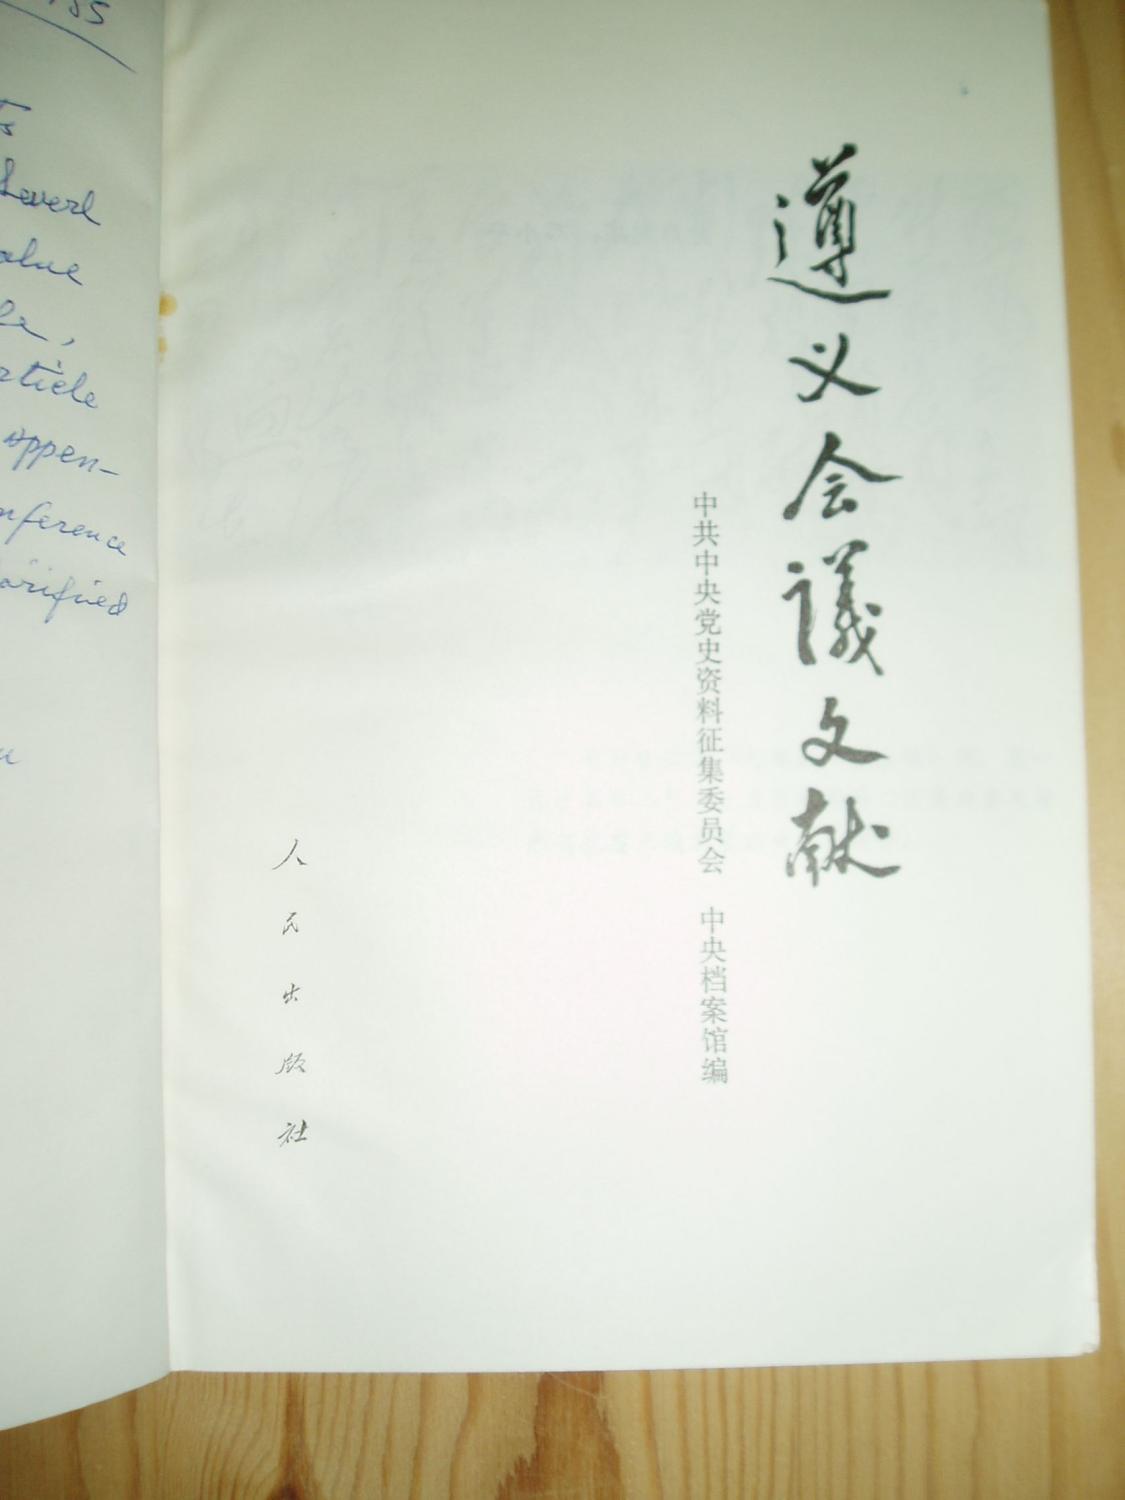 155
Ts
Severl
alue
le,
rticle
appen-
nference
larified
u
遵义会議文献
中共中央党史资料征集委员会 中央档案馆编
人民出版社